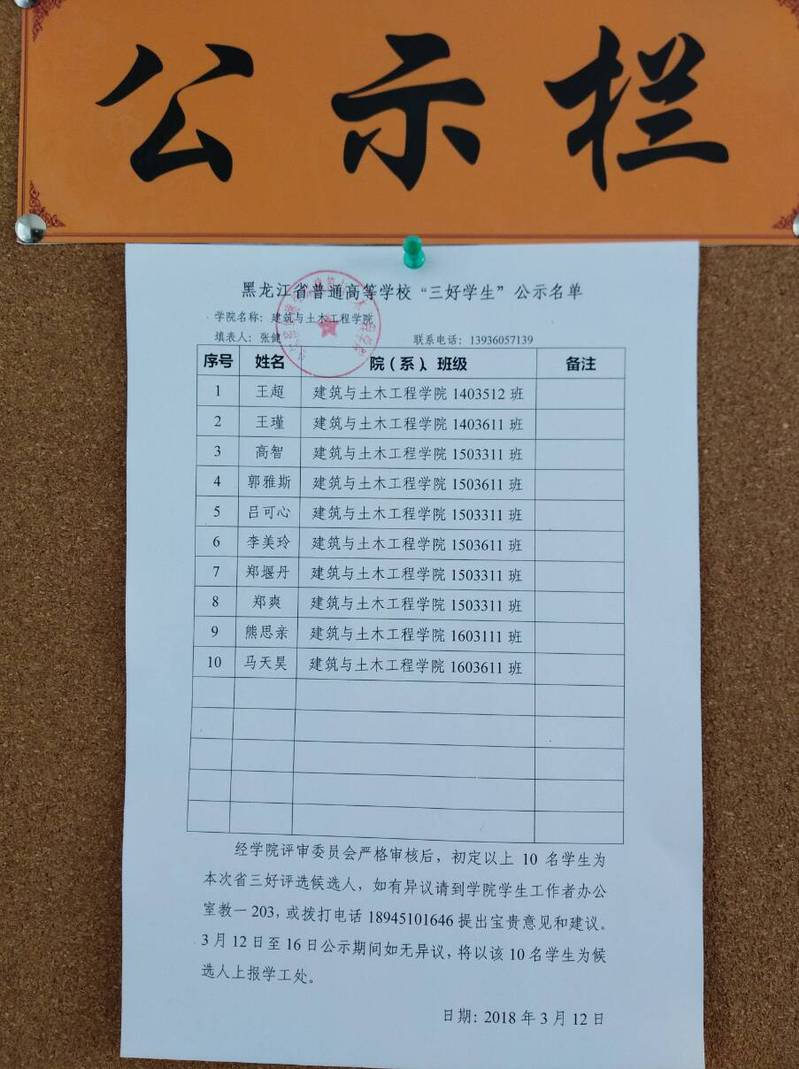 公示栏
黑龙江省普通高等学校“三好学生”公示名单
学院名称：建筑与土木工程学院
填表人：张健 联系电话：13936057139
序号 姓名 院（系）、班级 备注
1 王超 建筑与土木工程学院 1403512 班
2 王瑾 建筑与土木工程学院 1403611 班
3 高智 建筑与土木工程学院 1503311 班
4 郭雅斯 建筑与土木工程学院 1503611 班
5 吕可心 建筑与土木工程学院 1503311 班
6 李美玲 建筑与土木工程学院 1503611 班
7 郑堰丹 建筑与土木工程学院 1503311 班
8 郑爽 建筑与土木工程学院 1503311 班
9 熊思亲 建筑与土木工程学院 1603111 班
10 马天昊 建筑与土木工程学院 1603611 班
经学院评审委员会严格审核后，初定以上 10 名学生为
本次省三好评选候选人，如有异议请到学院学生工作者办公
室教一 203，或拨打电话 18945101646 提出宝贵意见和建议。
3 月 12 日至 16 日公示期间如无异议，将以该 10 名学生为候
选人上报学工处。
日期：2018 年 3 月 12 日